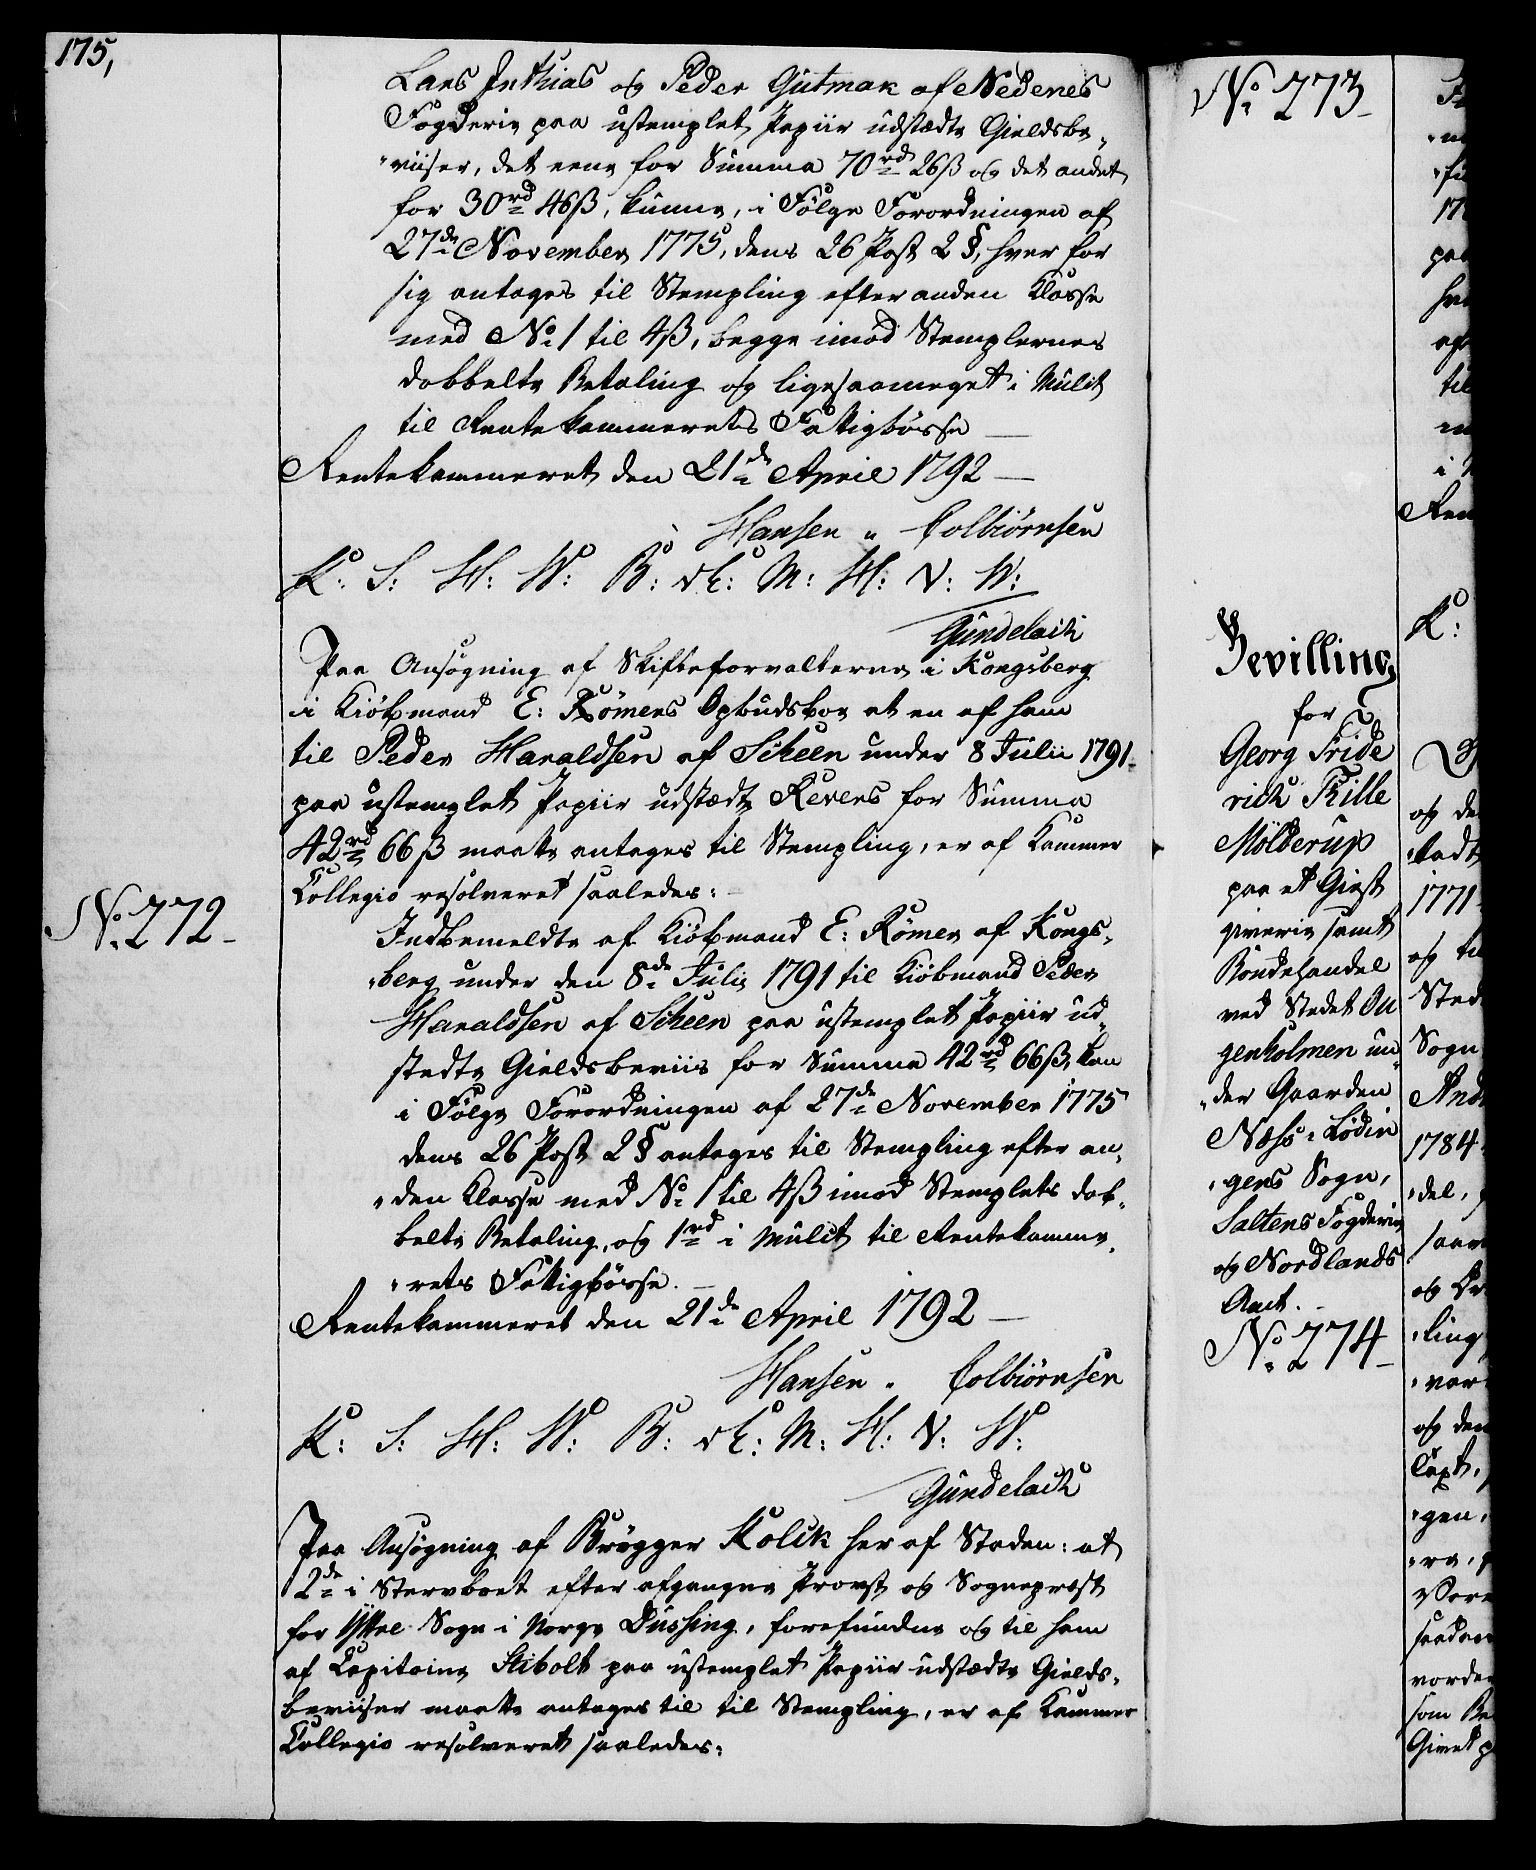 175,
Lars Inthias og Peder Gutmak af Nedenes
Fogderie paa ustemplet Papiir udstædte Gieldsbe„
„viiser, det eene for Summa 70rd 26ß og det andet
for 30rd 46ß, kunne, i Følge Forordningen af
27de November 1775, dens 26 Post 2 §, hver for
sig antages til Stempling efter anden Klasse
med No 1 til 4ß, begge imod Stemplernes
dobbelte Betaling og ligesaameget i Mulct
til Rentekammerets Fattigbøsse
Rentekammeret den 21de April 1792
Hansen „ Colbiørnsen
K: S: H: W: B: M: H: N: W:
Gundelach
Paa Ansøgning af Skifteforvalterne i Kongsberg
i Kiøbmand E: Rømers Opbudsboe at en af ham
til Peder Haraldsen af Scheen under 8 Julii 1791
paa ustemplet Papiir udstædt Revers for Summa
42rd 66 ß maatte antages til Stempling, er af Kammer
Collegio resolveret saaledes:
No 272
Indbemeldte af Kiøbmand E: Rømer af Kongs„
„berg under den 8de Julii 1791 til Kiøbmand Peder
Haraldsen af Scheen paa ustemplet Papiir ud„
stedte Gieldsbeviis for Summa 42rd 66ß, kan
i Følge Forordningen af 27de November 1775
dens 26 Post 2 § antages til Stempling efter an„
„den Klasse med No 1 til 4ß imod Stemplets dob„
belte Betaling, og 1rd i Mulct til Rentekamme„
„rets Fattigbøsse.
Rentekammeret den 21de April 1792
Hansen „ Colbiørnsen
K: S: H: W: B: M: H: N: W:
Gundelach
Paa Ansøgning af Brøgger Kolck her af Staden: at
2de i Stervboet efter afgangne Provst og Sognepræst
for Sogn i Norge Dussing, forefundne og til ham
af Capitaine Stibolt paa ustemplet Papiir udstædte Gields„
beviiser maatte antages til til Stempling, er af Kammer
Collegio resolveret saaledes:
No 273
Bevilling
for
Georg Fride
rich Thille
Mölderup
paa et Giest
giverie samt
Bondehandel
ved Stedet On
genholmen un„
„der Gaarden
Næss i Lødin
„gens Sogn,
Saltens Fogderie
og Nordlands
Amt.
No 274